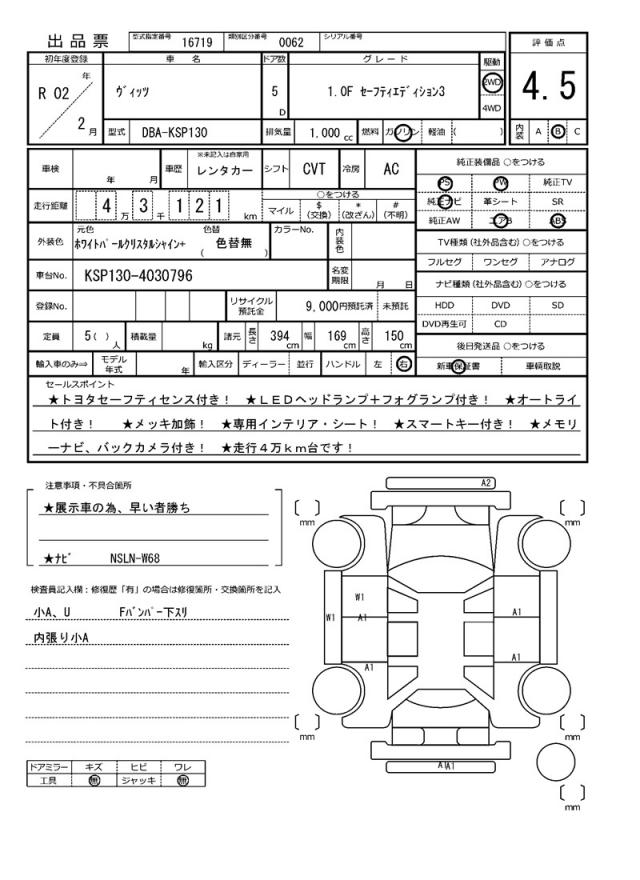 出品票 型式指定番号 16719 類別区分番号 0062 シリアル番号
初年度登録 車名 ドア数 グレード 駆動 評価点
R 02 年 2 月 ヴィッツ 5 D 1.0F セーフティエディション3 2WD 4WD 4.5
型式 DBA-KSP130 排気量 1,000 cc 燃料 ガソリン 軽油 ( ) 内装 A B C
車検 年 月 車歴 ※未記入は自家用 レンタカー シフト CVT 冷房 AC 純正装備品 ○をつける
PS PW 純正TV
走行距離 4 万 3 千 1 2 1 km ○をつける マイル $ (交換) * (改ざん) # (不明) 純正ナビ 革シート SR
純正AW エアB ABS
外装色 元色 ホワイトパールクリスタルシャイン+ 色替 ( 色替無 ) カラーNo. 内装色 TV種類 (社外品含む) ○をつける
フルセグ ワンセグ アナログ
車台No. KSP130-4030796 名変期限 月 日 ナビ種類 (社外品含む) ○をつける
登録No. リサイクル預託金 9,000円預託済 未預託 HDD DVD SD
DVD再生可 CD
定員 5 ( ) 人 積載量 kg 諸元 長さ 394 cm 幅 169 cm 高さ 150 cm 後日発送品 ○をつける
輸入車のみ⇒ モデル年式 年 輸入区分 ディーラー 並行 ハンドル 左 右 新車保証書 車輌取説
セールスポイント
★トヨタセーフティセンス付き！ ★ＬＥＤヘッドランプ＋フォグランプ付き！ ★オートライ
ト付き！ ★メッキ加飾！ ★専用インテリア・シート！ ★スマートキー付き！ ★メモリ
ーナビ、バックカメラ付き！ ★走行４万ｋｍ台です！
注意事項・不具合箇所
★展示車の為、早い者勝ち
★ナビ NSLN-W68
検査員記入欄：修復歴「有」の場合は修復箇所・交換箇所を記入
小A、U Fバンパー下スリ
内張り小A
ドアミラー キズ ヒビ ワレ
工具 無 ジャッキ 無
A2
[ ] mm [ ] mm
W1
W1 A1 A1
A1 A1
[ ] mm [ ] mm
A1 A1
[ ] mm